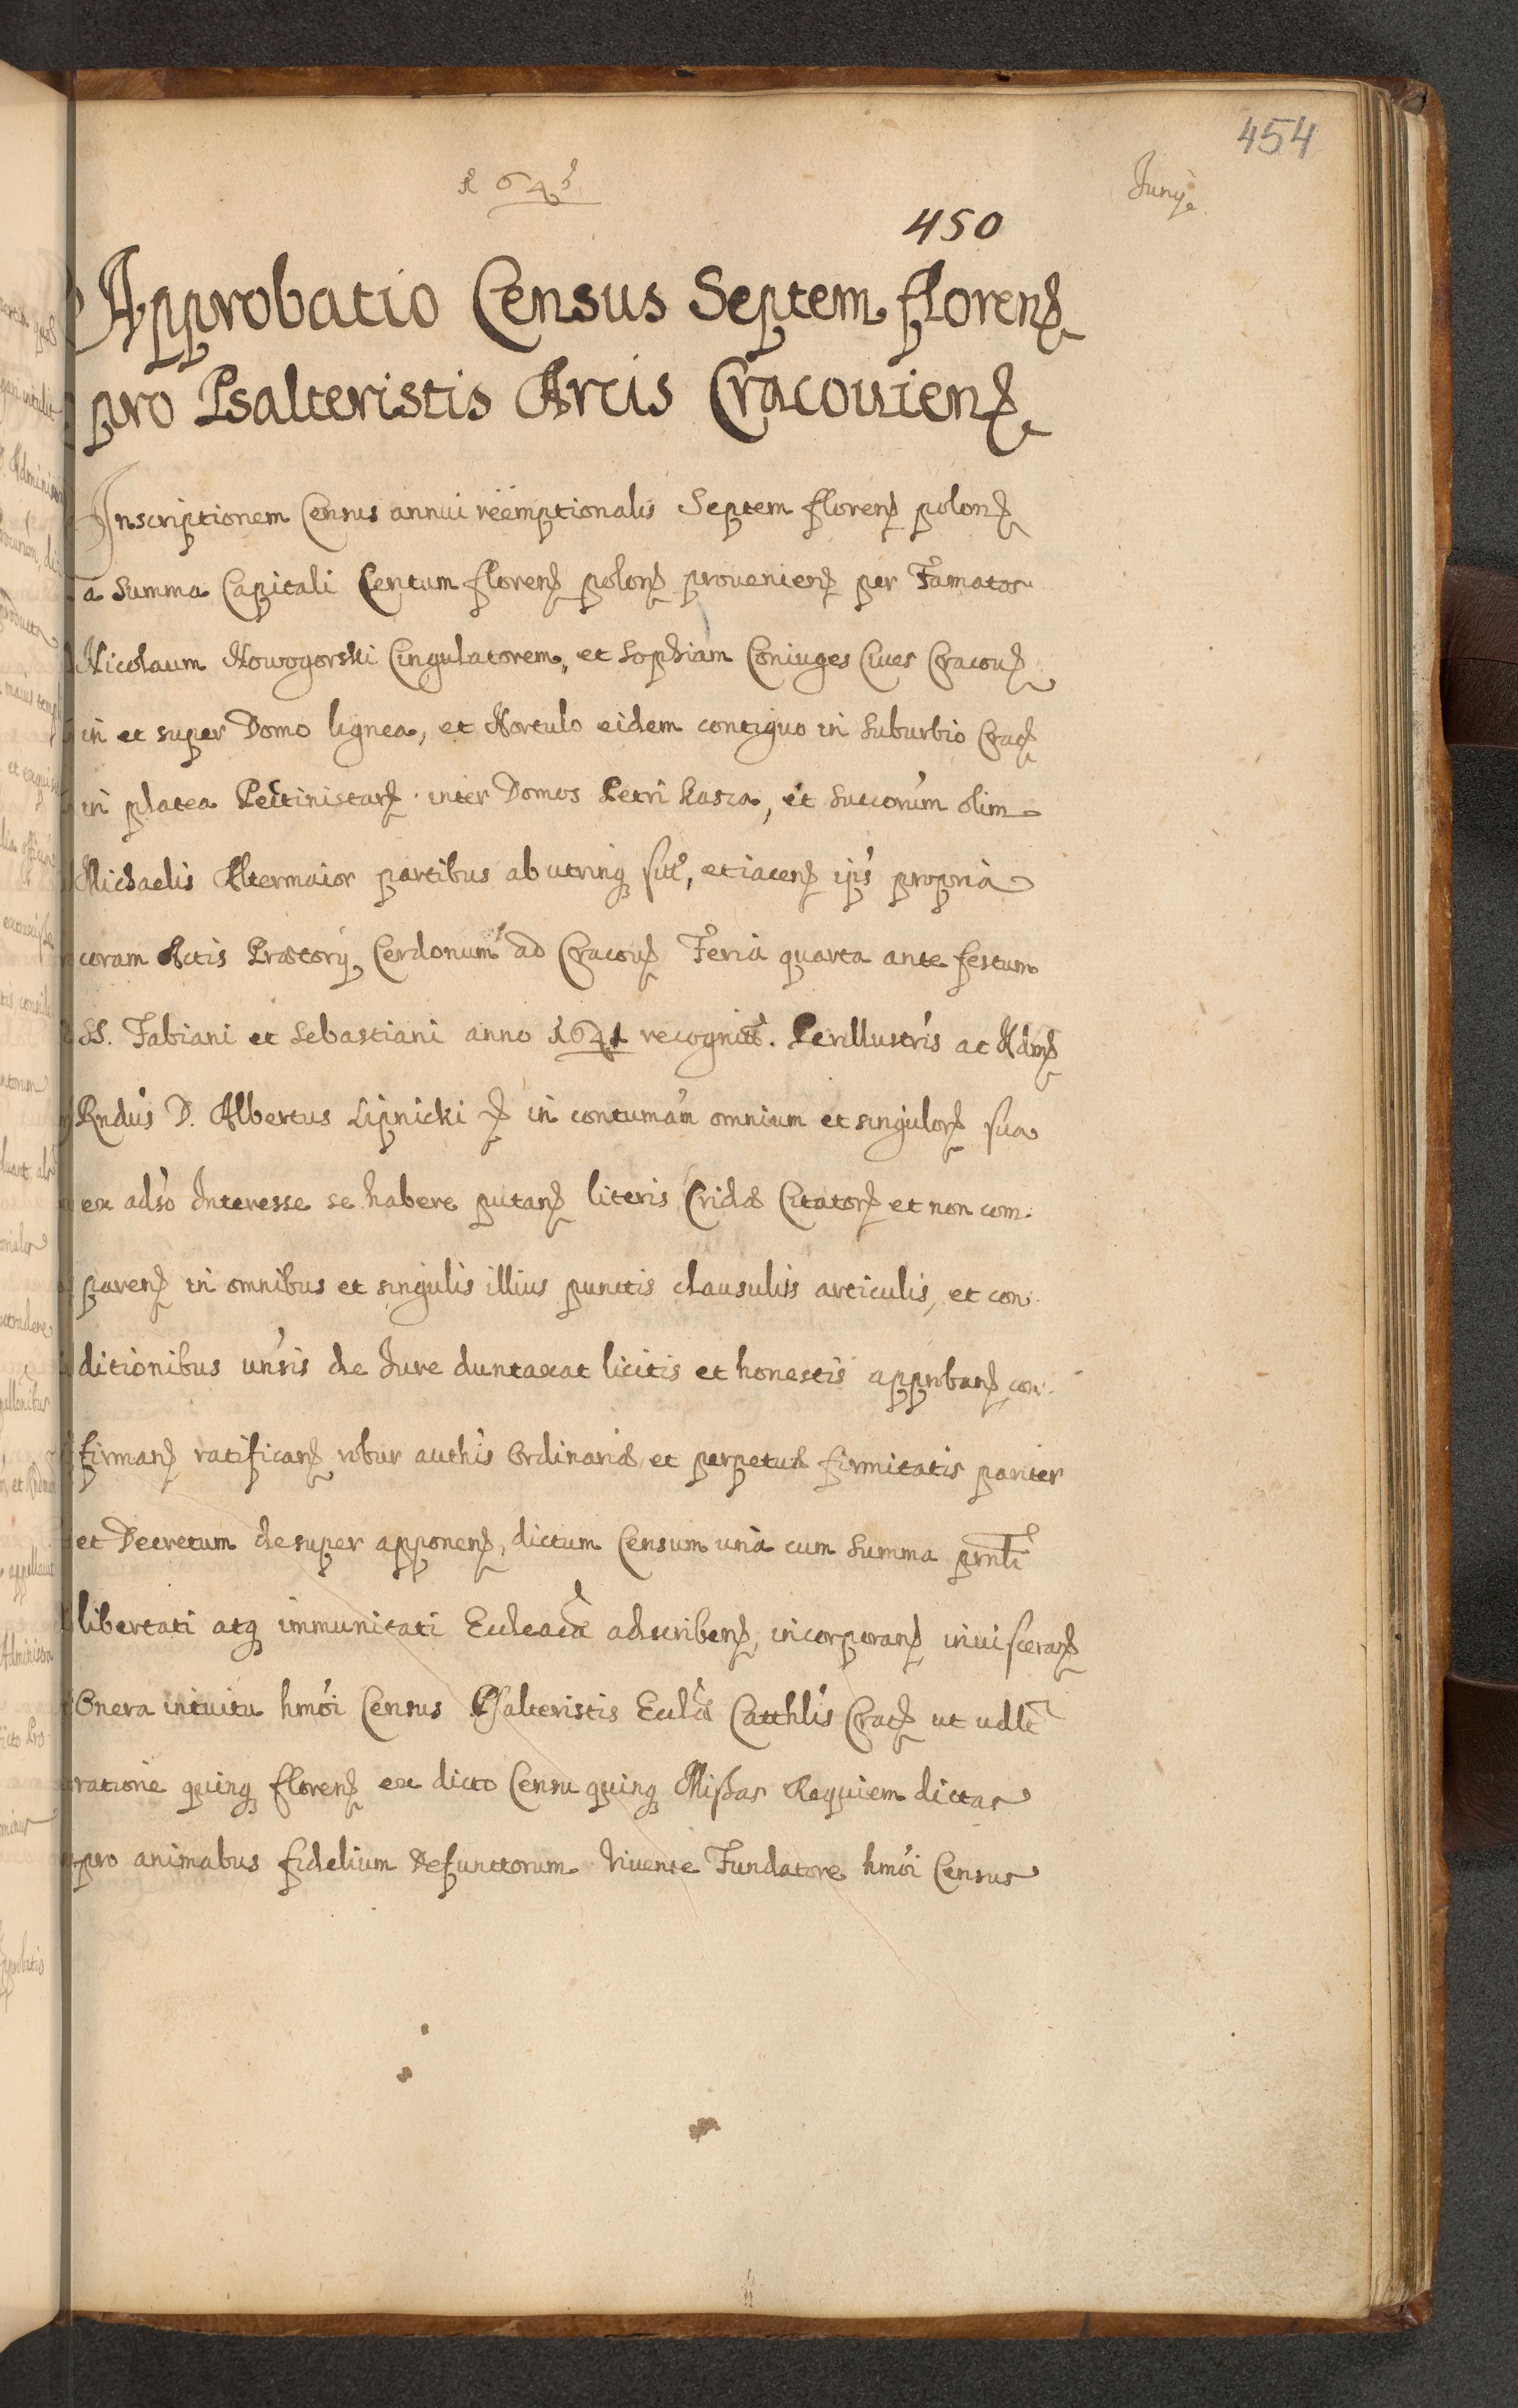 454
1641
Junij
450
Approbatio Census Septem floren̄
pro Psalteristis Arcis Cracouien̄
Inscriptionem Census annui reëmptionalis Septem floren̄ polon̄
a Summa Capitali Centum floren̄ polon̄ prouenien̄ per Famatos
Nicolaum Nowogorski Cingulatorem, et Sophiam Coniuges Ciues Cracou̅
in et super Domo lignea, et Hortulo eidem contiguo in Suburbio Crac̄
in platea Pectinistar̄ inter Domos Petri Kasza, et Succorum olim
Michaelis Altermaior partibus ab utrinq̃ sit', et iacen̄ ip̄s propria
coram Actis Prætorij Cerdonum ad Cracou̅ Feria quarta ante festum
SS. Fabiani et Sebastiani anno 1641 recognit'. Perillustris ac Adm̄
Rndus D. Albertus Lipnicki in contumam̄ omnium et singulor̄ sua
ex adso Interesse se habere putan̄ literis Cridæ Citator̄ et non com-
paren̄ in omnibus et singulis illius punctis clausulis articulis, et con-
ditionibus un̄sis de Jure duntaxat licitis et honestis approban̄ con-
firman̄ ratifican̄ robur auth̄is Ordinariæ et perpetuæ firmitatis pariter
et Decretum desuper apponen̄, dictum Censum unà cum Summa prn̄ti
libertati atq̃ immunitati Eccl̄acæ adscriben̄, incorporan̄ inuisceran̄
Onera intuitu hmōi Census Psalteristis Eccl̄æ Catthlis Crac̄ ut udlt
ratione quinq̃ floren̄ ex dicto Censu quinq̃ Missas Requiem dictas
pro animabus fidelium Defunctorum viuente Fundatore hmōi Census